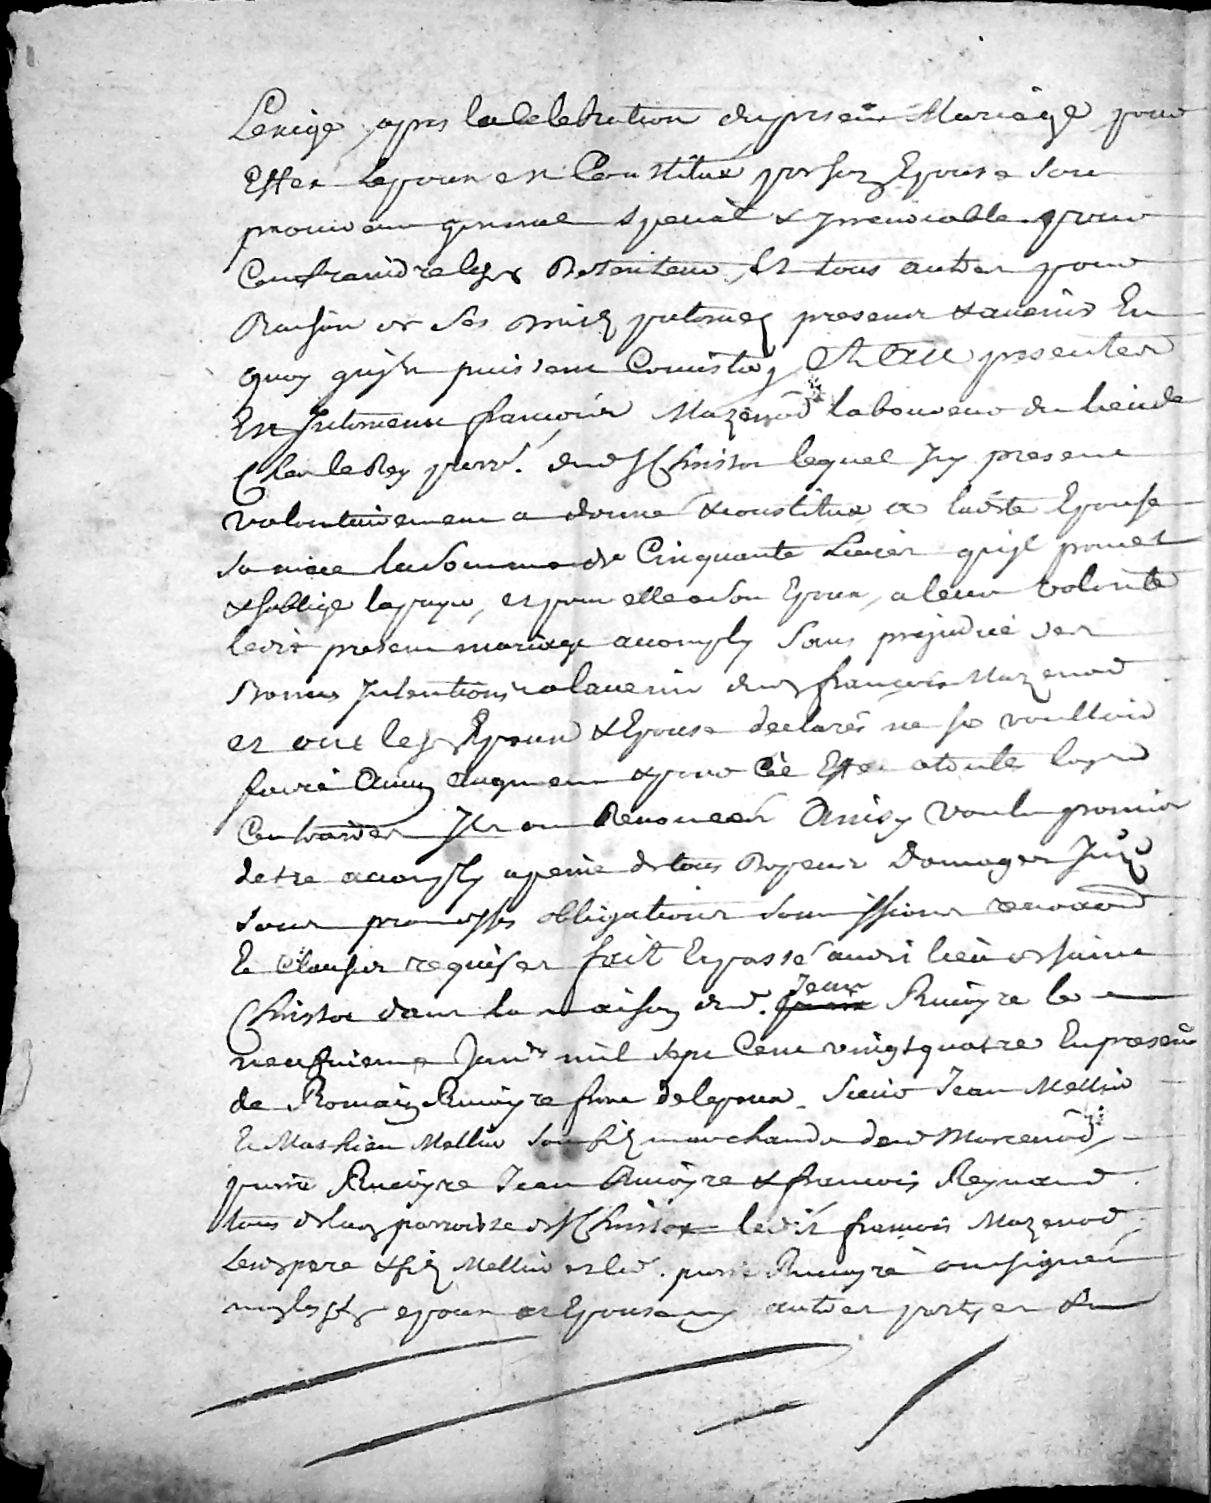 Lexige, apres la celebration du present Mariage pour
Effet Lepoux en Constitué par son Epouse son
procureur general special & Irrevocable pour
Contraindre lesd Detenteurs, Et tous autres pour
Raison de ses droits presens & avenir En
quoy quils puissent Consister, Et Au presenter
Est Intervenu françois Mazenod laboureur du lieu de
lequel Icy present
volontairement a donné & constitué a ladite Epouse
sa niece la Somme de Cinquante Livres quil promet
& soblige la payer, et pour elle a son Epoux, a leur volonté
ledit present mariage accomply Sans prejudice des
Bonnes Intentions a lavenir dud françois Mazenod
et ont lesd Epoux & Epouse declarés ne se voulloir
faire Aucun augment & pour Cet Effet a toute loy
Contraires Ils ont Renoncés Ainsy voulu promis
detre accomply a peine de tous Depens Domages
sous promesses obligations soumissions renonciaoñ
Et Clauses requises fait Et passé audit lieu de saint
Christo dans la maison dud. Jean Rivoyre le
neufvieme Janv mil sept Cent vingt quatre En presence
de Romain Rivoyre frere de lepoux Sieur Jean Mellin
Et Mathieu Mellin son fils marchands de Marcenod,
pierre Rivoyre Jean Rivoyre & francois Reynaud
tous de lad parroisse de St Christo ledit francois Mazenod
Lesd pere & fils Mellin et led. pierre Rivoyre ont signés
non lesd epoux et Epouse ny autres partyes